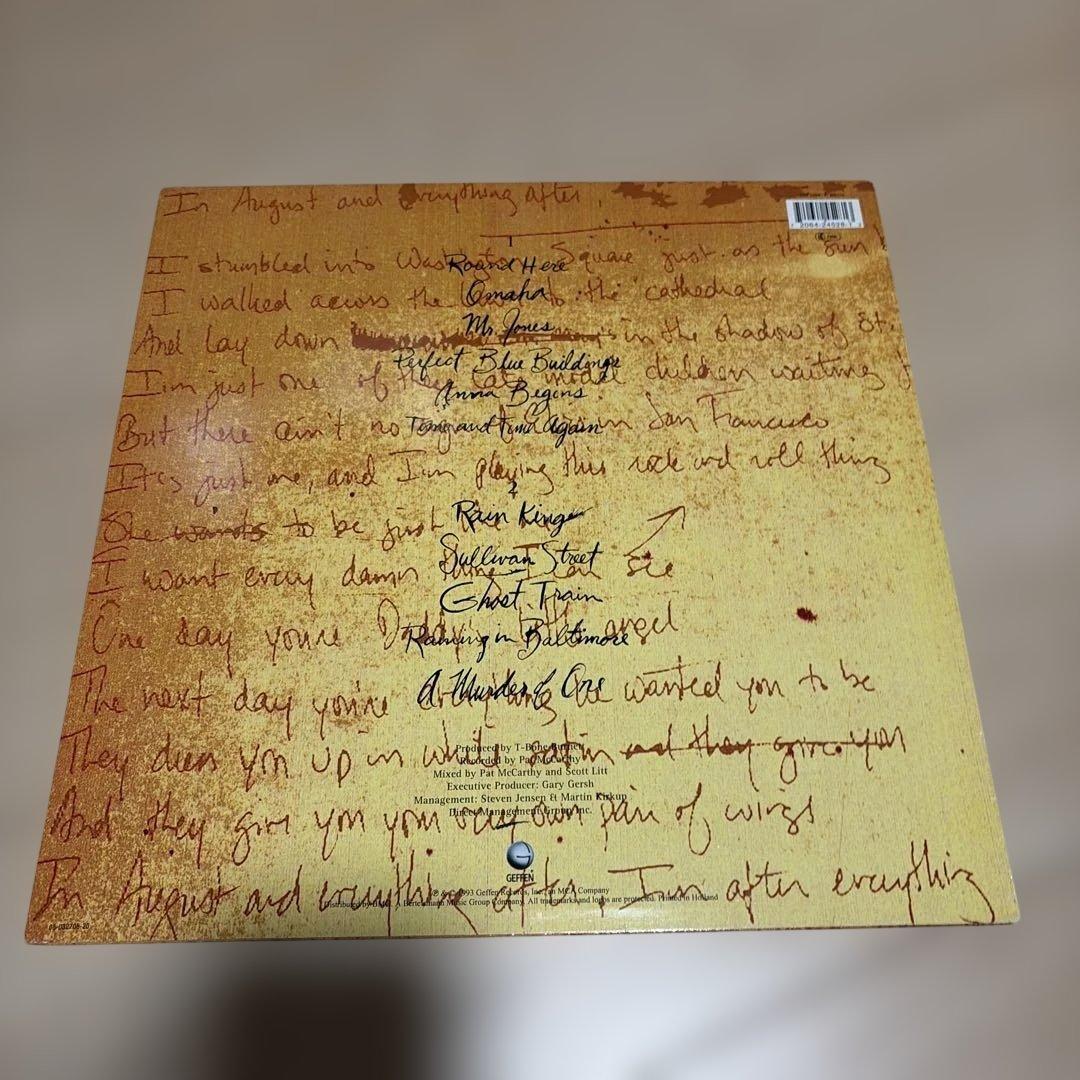 In August and everything after,
2064-24528-1
1
I stumbled into Washington Square just as the sun
Round Here
I walked across the to the cathedral
Omaha
And lay down in the shadow of St.
Mr. Jones
I'm just one of these late model children waiting
Perfect Blue Buildings
Anna Begins
But there ain't no in San Francisco
Time and Time Again
It's just me, and I'm playing this rock and roll thing
2
She wants to be just like me
Rain King
I want every damn thing I can see
Sullivan Street
Ghost Train
One day you're Daddy's little angel
Raining in Baltimore
The next day you're everything he wanted you to be
A Murder of One
They dress you up in white satin and they give you
Produced by T-Bone Burnett
Recorded by Pat McCarthy
Mixed by Pat McCarthy and Scott Litt
Executive Producer: Gary Gersh
Management: Steven Jensen & Martin Kirkup
Direct Management Group Inc.
And they give you your very own pair of wings
GEFFEN
In August and everything after, I'm after everything
℗ & © 1993 Geffen Records, Inc., an MCA Company
Distributed by BMG A Bertelsmann Music Group Company. All trademarks and logos are protected. Printed in Holland